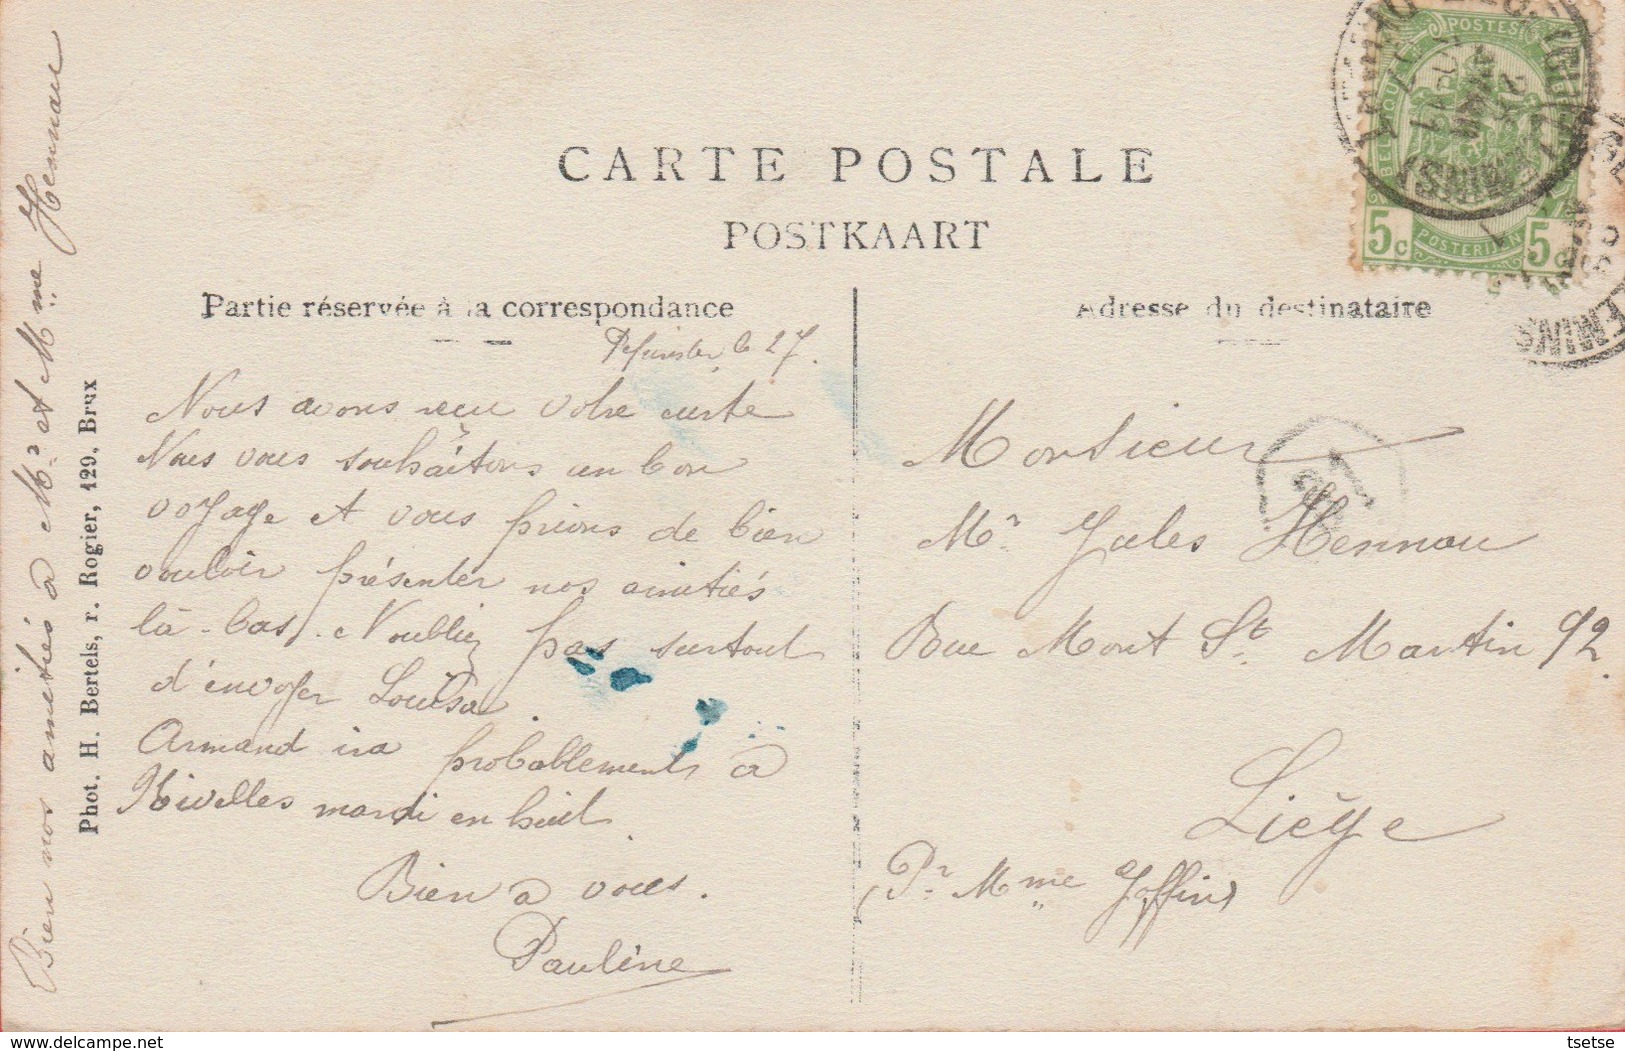 CARTE POSTALE
POSTKAART
Partie réservée à la correspondance
Adresse du destinataire
le 27.
Nous avons reçu votre carte
Nous vous souhaitons un bon
voyage et vous prions de bien
vouloir présenter nos amitiés
là-bas. N'oubliez pas surtout
d'envoyer Louisa.
Armand ira probablement à
Nivelles mardi en huit.
Bien à vous.
Pauline
Bien nos amitiés à Mr. et Mme Hennau
Phot. H. Bertels, r. Rogier, 129, Brux
Monsieur
Mr. Jules Hennau
Rue Mont St. Martin 92.
Liège
(Pr. Mme Joffin)
POSTES
BELGIQUE
POSTERIJEN
5c
5c
tsetse